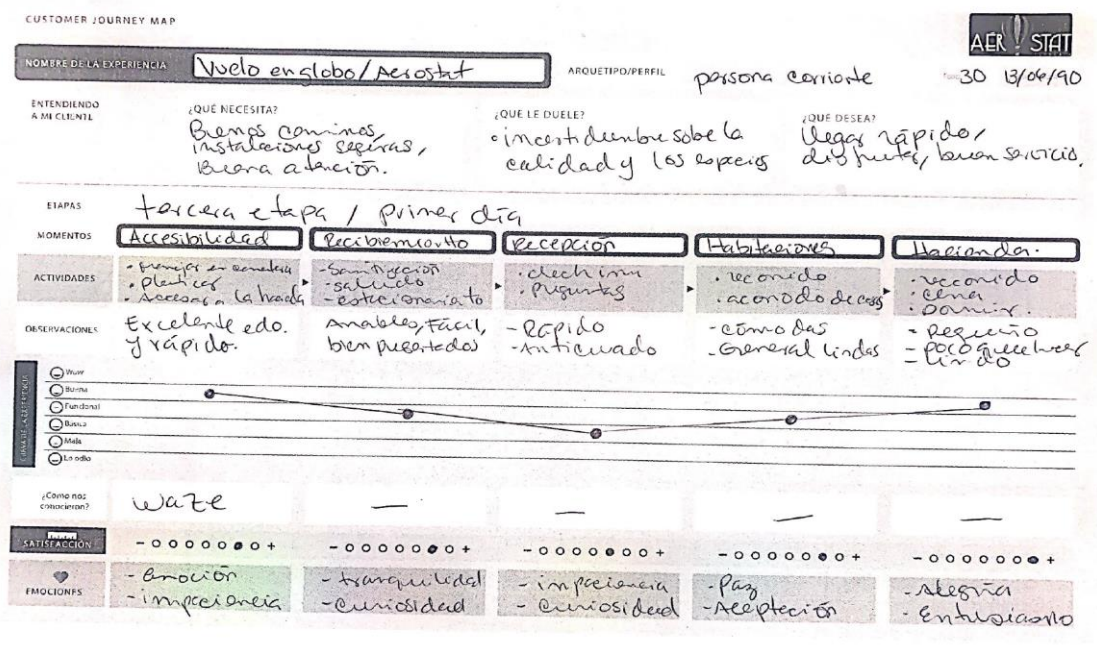 CUSTOMER JOURNEY MAP
AER STAT
NOMBRE DE LA EXPERIENCIA Vuelo en globo/Aerostat ARQUETIPO/PERFIL persona corriente 30 13/04/90
ENTENDIENDO A MI CLIENTE
¿QUÉ NECESITA?
Buenos caminos,
instalaciones seguras,
Buena atención.
¿QUE LE DUELE?
• incertidumbre sobe la
calidad y los espacios
¿QUÉ DESEA?
llegar rápido,
disfrutar, buen servicio.
ETAPAS tercera etapa / primer día
MOMENTOS Accesibilidad Recibiemiento Recepción Habitaciones Hacienda.
ACTIVIDADES
• manejar en carretera
• platicar
• Accesar a la
- Sanitización
- saludo
- estacionamiento
• checkinn
• preguntas
• recorrido
• acomodo de cosas
• recorrido
• cena
• Dormir.
OBSERVACIONES
Excelente edo.
y rápido.
Amables, Fácil,
bien
- Rápido
- Anticuado
- cómodas
- General lindas
- pequeño
- poco que hacer
- lindo
CURVA DE LA EXPERIENCIA
Wow
Buena
Funcional
Básica
Mala
Lo odio
¿Como nos conocieron? waze — — — —
SATISFACCIÓN - + - + - + - + - +
EMOCIONES
- Emoción
- impaciencia
- tranquilidad
- Curiosidad
- impaciencia
- Curiosidad
- Paz
- Aceptación
- Alegría
- Entusiasmo